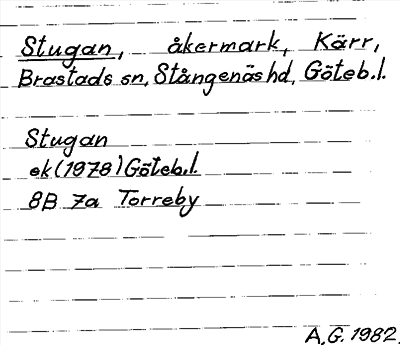 Stugan, åkermark, Kärr,
Brastads sn, Stångenäs hd, Göteb.l.
Stugan
ek (1978) Göteb.l.
8B 7a Torreby
A.G. 1982.